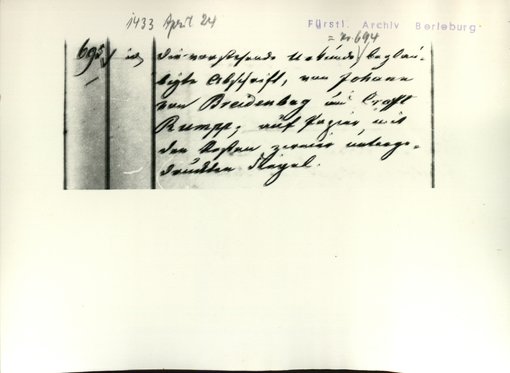 1433 April 24
Fürstl. Archiv Berleburg
= Nr. 694
695) die vorstehende Urkunde) beglau-
bigte Abschrift, von Johann
von Breidenbag und Crafft
Rumpe, auf Papier mit
den Resten zweier unterge-
druckten Siegel.